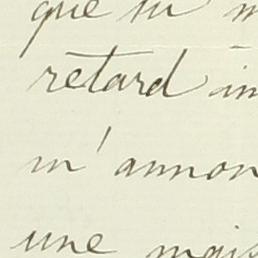 que tu
retard
m'annon
une mais